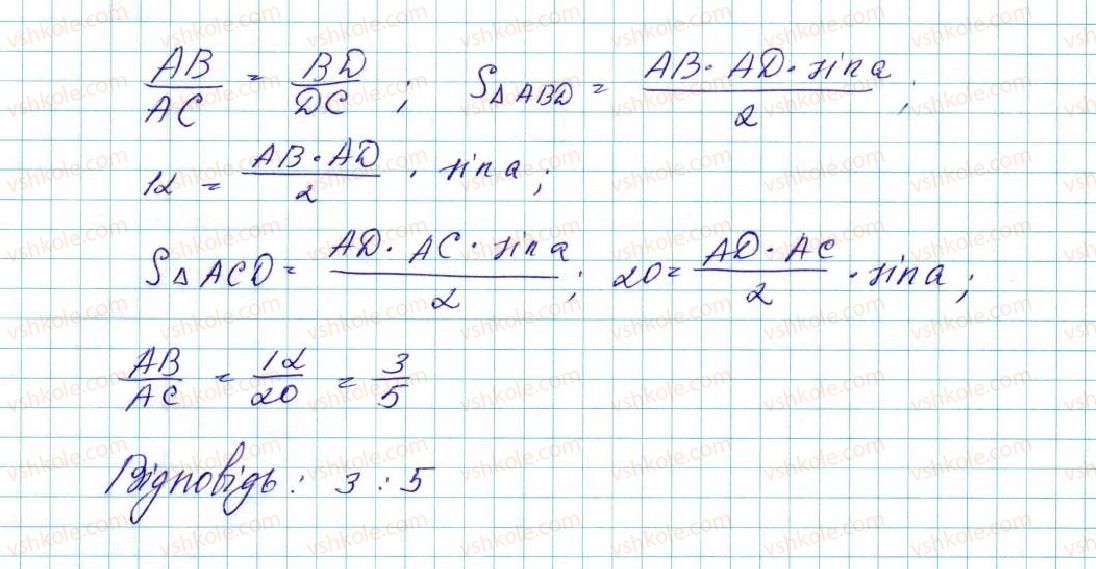 AB/AC = BD/DC ; S△ABD = AB · AD · sin a / 2 ;
12 = AB · AD / 2 · sin a ;
S△ACD = AD · AC · sin a / 2 ; 20 = AD · AC / 2 · sin a ;
AB/AC = 12/20 = 3/5
Відповідь : 3 : 5
vshkole.com